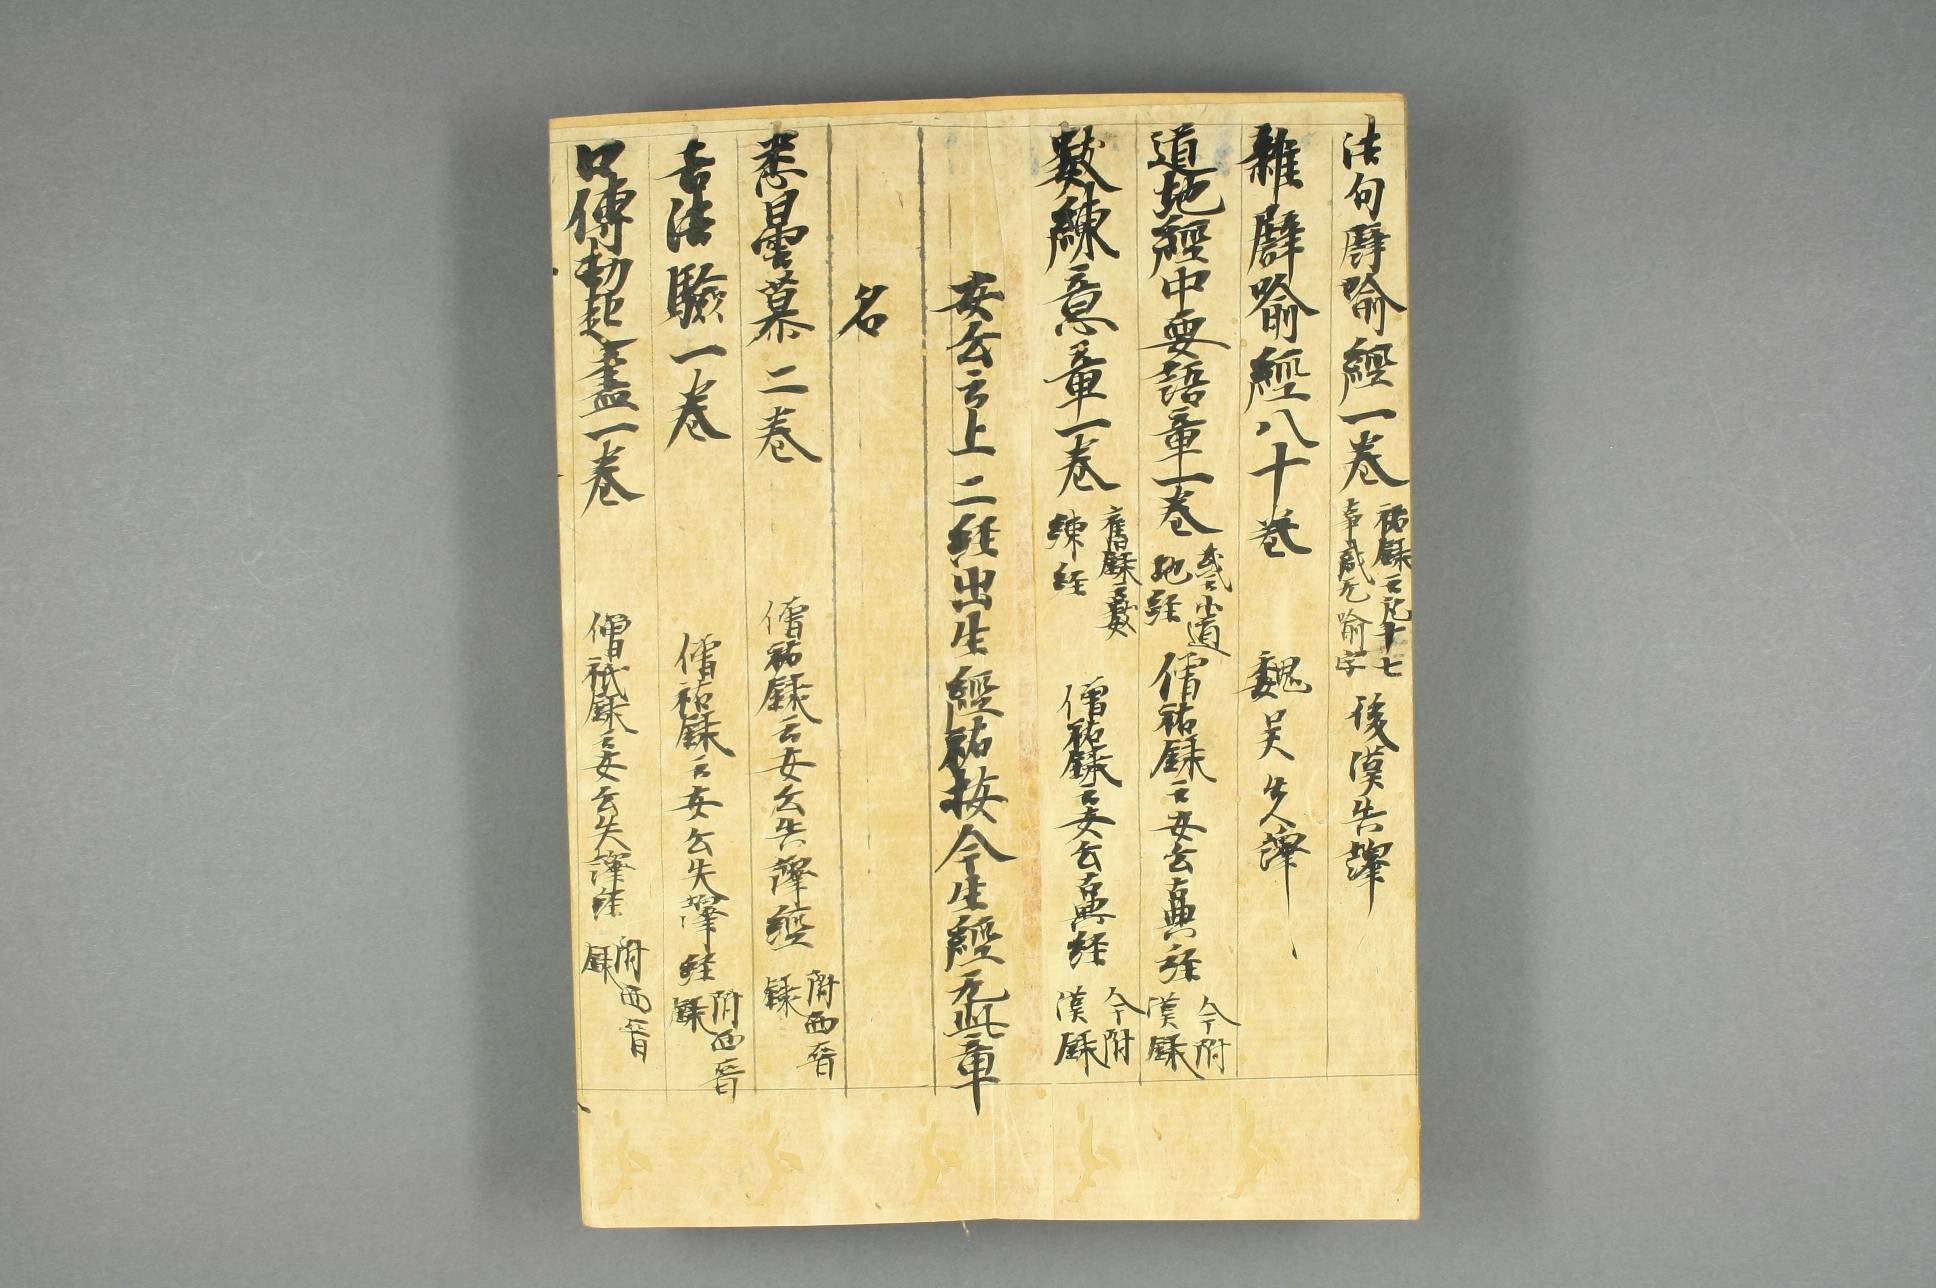 法句譬喻經一卷 祐録云凡十七事或无喻字 後漢失譯
雜譬喻經八十卷 魏吴失人譯
道地經中要語章一卷 或云小道地経 僧祐録云安公古典経 今附漢録
數練意章一卷 舊録云數練経 僧祐録云安公古典経 今附漢録
安公云上二経出生經祐按今生經无此章
名
悉曇慕二卷 僧祐録云安公失譯經 附西晉録
吉法驗一卷 僧祐録云安公失譯経 附西晉録
口傳劫起盡一卷 僧祇録云安公失譯経 附西晉録